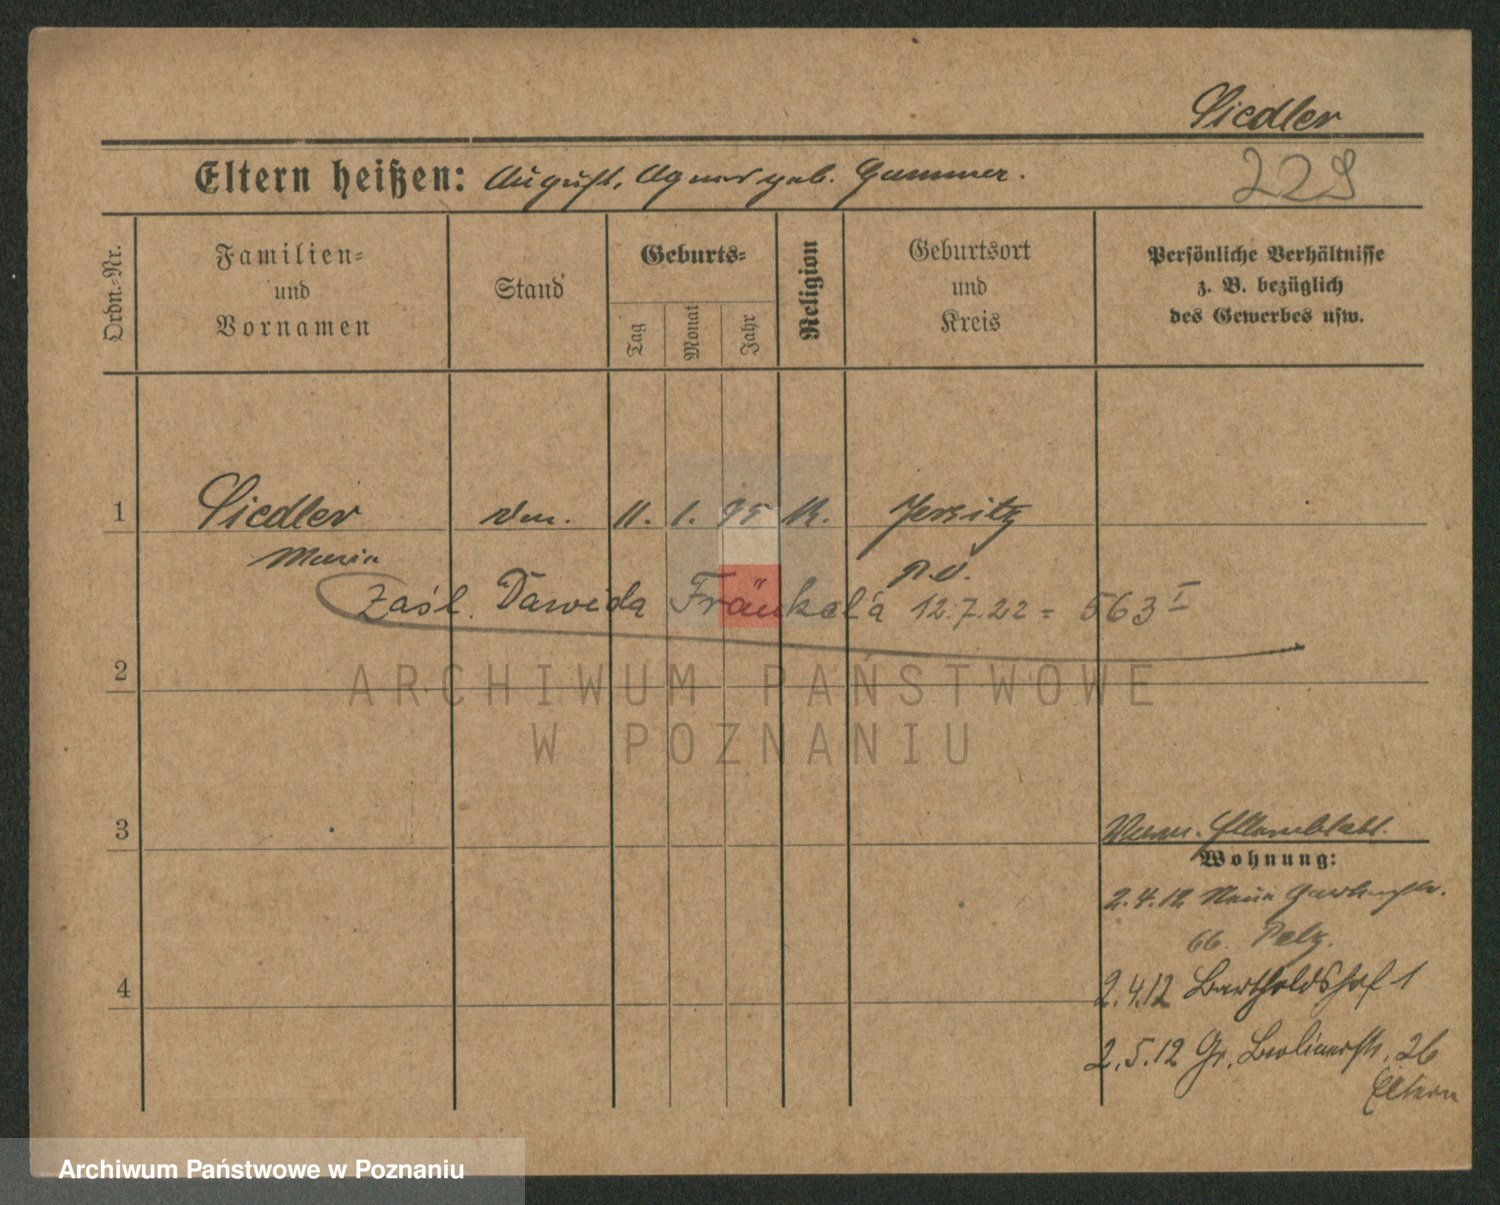 Siedler
Eltern heißen: August, Agnes geb. Gummer.
229
Ordn.-Nr.
Familien-
und
Vornamen
Stand
Geburts-
Tag
Monat
Jahr
Religion
Geburtsort
und
Kreis
Persönliche Verhältnisse
z. B. bezüglich
des Gewerbes usw.
1 Siedler 11. 1. 95 K. Jersitz
Maria P. O.
Zaśl. Dawida Fränkel'a 12.7.22 = 563 I
2
ARCHIWUM PAŃSTWOWE
W POZNANIU
3
Wohnung:
2.4.12 Neue Gartenstr.
66.
4
2.4.12 Bartholdshof 1
2.5.12 Gr. Berlinerstr. 26
Eltern
Archiwum Państwowe w Poznaniu